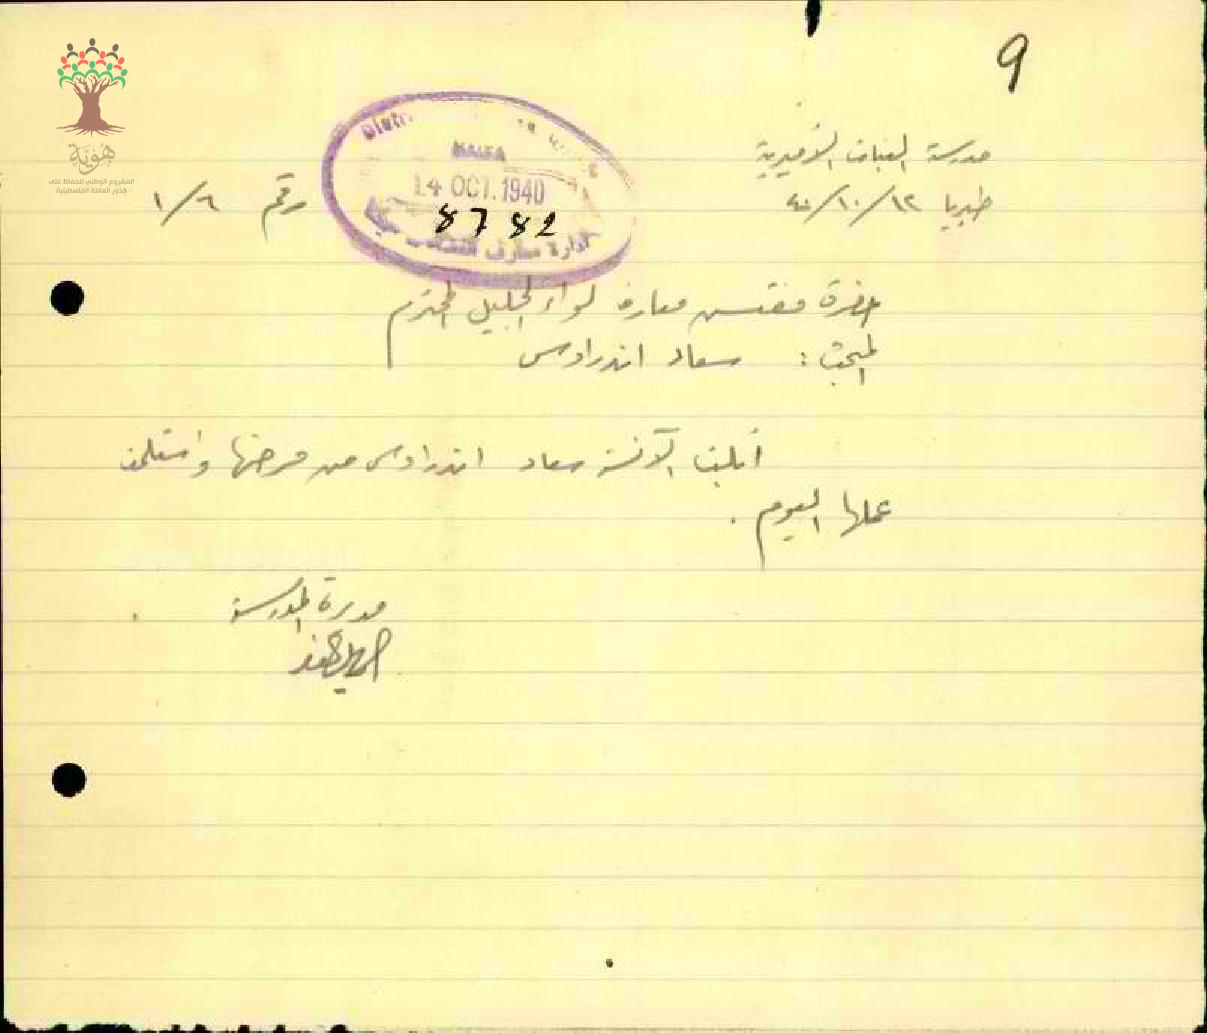 9
هوية
المشروع الوطني للحفاظ على
جذور العائلة الفلسطينية
مدرسة البنات الأميرية
طبريا ١٢/١٠/٤٠
رقم ١/٦
Distr
HAIFA
14 OCT. 1940
8782
ادارة معارف
حضرة مفتش معارف لواء الجليل المحترم
المبحث : سعاد اندراوس
أبلت الآنسة سعاد اندراوس من مرضها واستلمت
عملها اليوم .
مديرة المدرسة